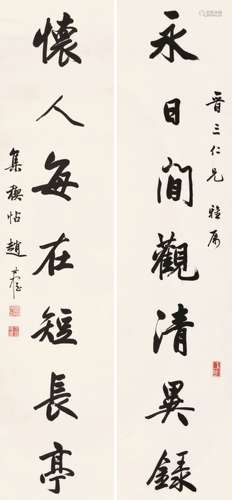 永日閒觀清異錄
晉三仁兄雅屬
懷人每在短長亭
集禊帖趙